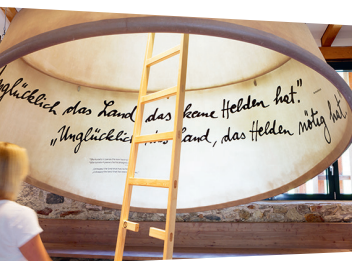 unglücklich das Land, das keine Helden hat." –
„Unglücklich das Land, das Helden nötig hat